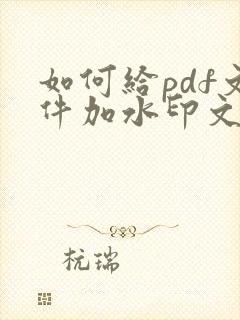 如何给pdf文
件加水印文
杭瑞